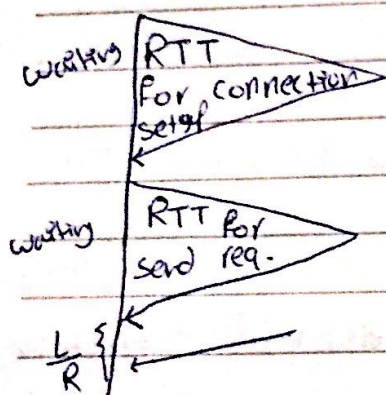 waiting RTT
for connection
setup
waiting RTT for
send req.
L
R